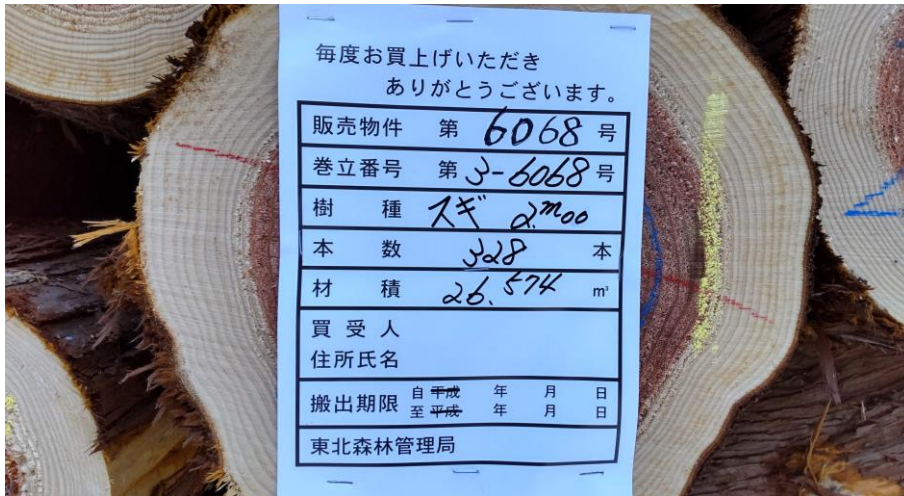 毎度お買上げいただき
ありがとうございます。
販売物件 第 6068 号
巻立番号 第 3-6068 号
樹 種 スギ 2.m00
本 数 328 本
材 積 26.574 m³
買 受 人
住所氏名
搬出期限 自 平成 年 月 日
至 平成 年 月 日
東北森林管理局